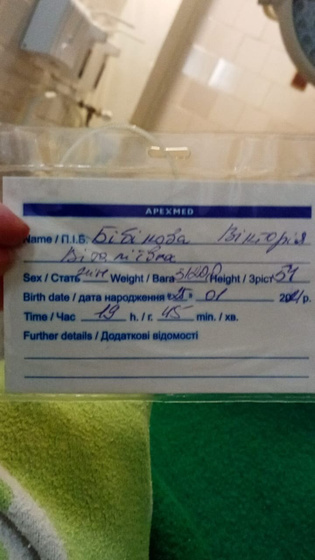 APEXMED
Name / П.І.Б. Бібікова Вікторія
Віталіївна
Sex / Стать жін Weight / Вага Height / Зріст 54
Birth date / дата народження 01 р.
Time / Час 19 h. / г. 45 min. / хв.
Further details / Додаткові відомості